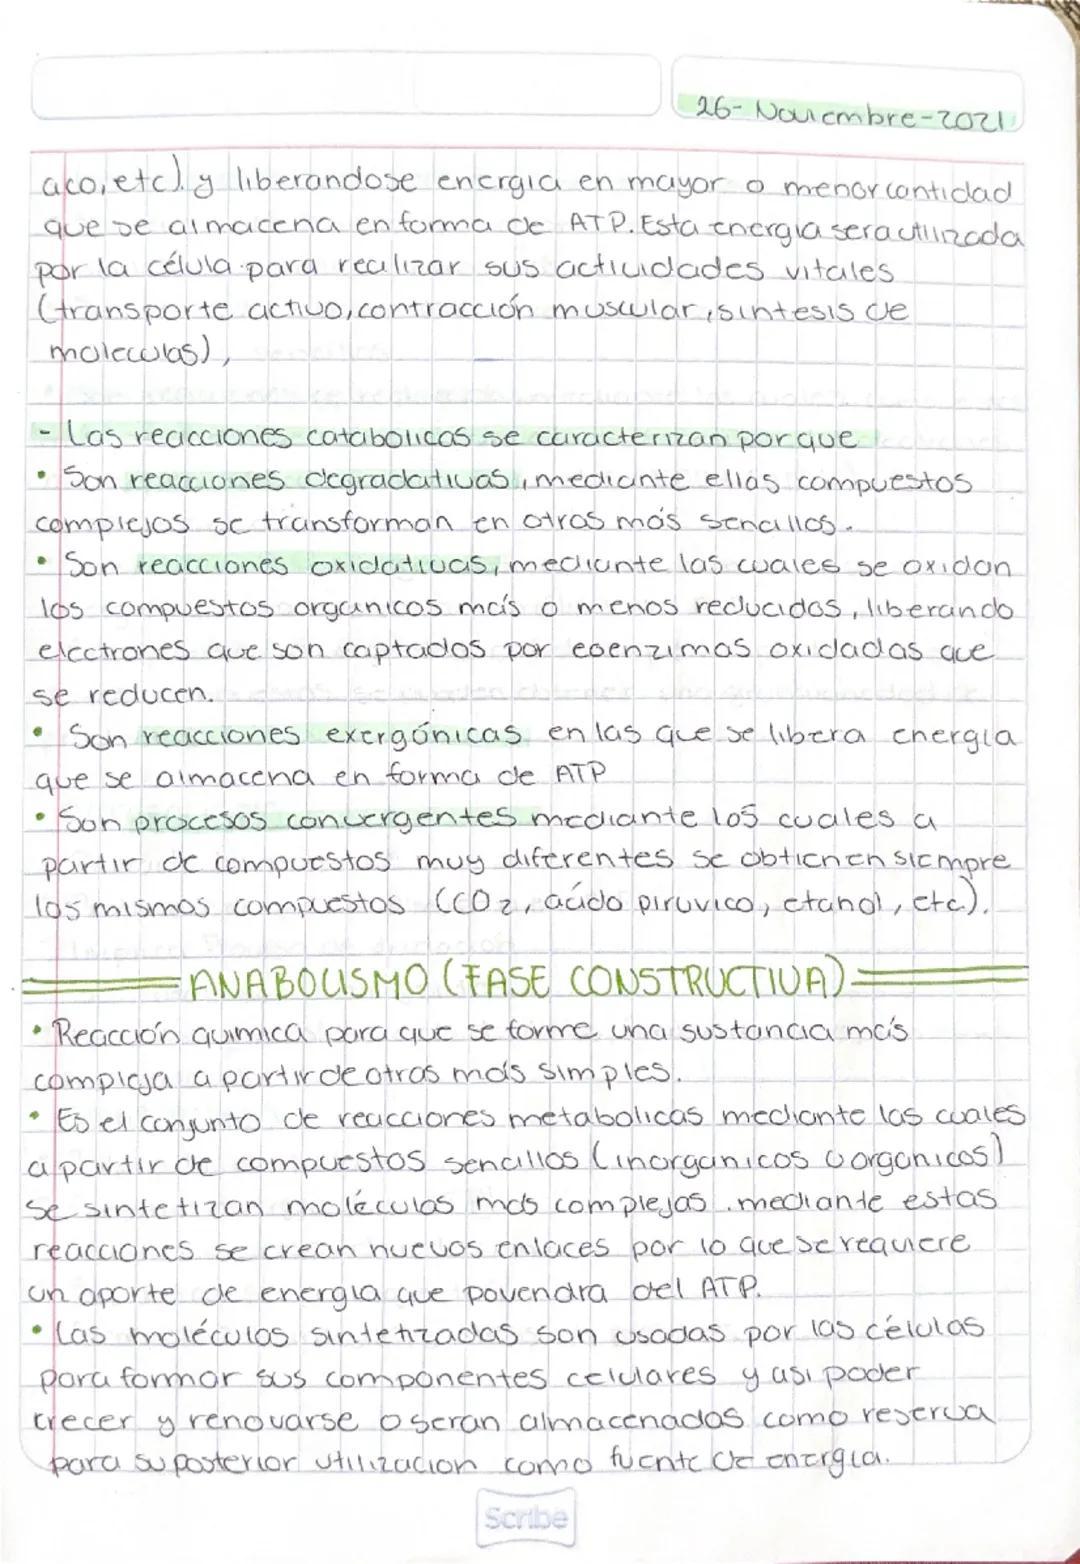 26-Noviembre-2021
aco, etc). y liberandose energia en mayor o menor cantidad
que se almacena en forma de ATP. Esta energia sera utilizada
por la célula para realizar sus actividades vitales
(transporte activo, contracción muscular, sintesis de
moleculas),
- Las reacciones catabolicas se caracterizan por que
• Son reacciones degradativas, mediante ellas compuestos
complejos se transforman en otros más sencillos.
• Son reacciones oxidativas, mediante las cuales se oxidan
los compuestos organicos más o menos reducidos, liberando
electrones que son captados por coenzimas oxidadas que
se reducen.
• Son reacciones exergónicas en las que se libera energia
que se almacena en forma de ATP
• Son procesos convergentes mediante los cuales a
partir de compuestos muy diferentes se obtienen siempre
los mismos compuestos (CO2, acído piruvico, etanol, etc).
ANABOLISMO (FASE CONSTRUCTIVA)
• Reacción quimica para que se forme una sustancia más
compleja a partir de otras más simples.
• Es el conjunto de reacciones metabolicas mediante las cuales
a partir de compuestos sencillos (inorganicos u organicos)
se sintetizan moléculas más complejas. mediante estas
reacciones se crean nuevos enlaces por lo que se requiere
un aporte de energia que povendra del ATP.
• Las moléculas sintetizadas son usadas por las células
para formar sus componentes celulares y asi poder
crecer y renovarse o seran almacenados como reserva
para su posterior utilización como fuente de energia.
Scribe